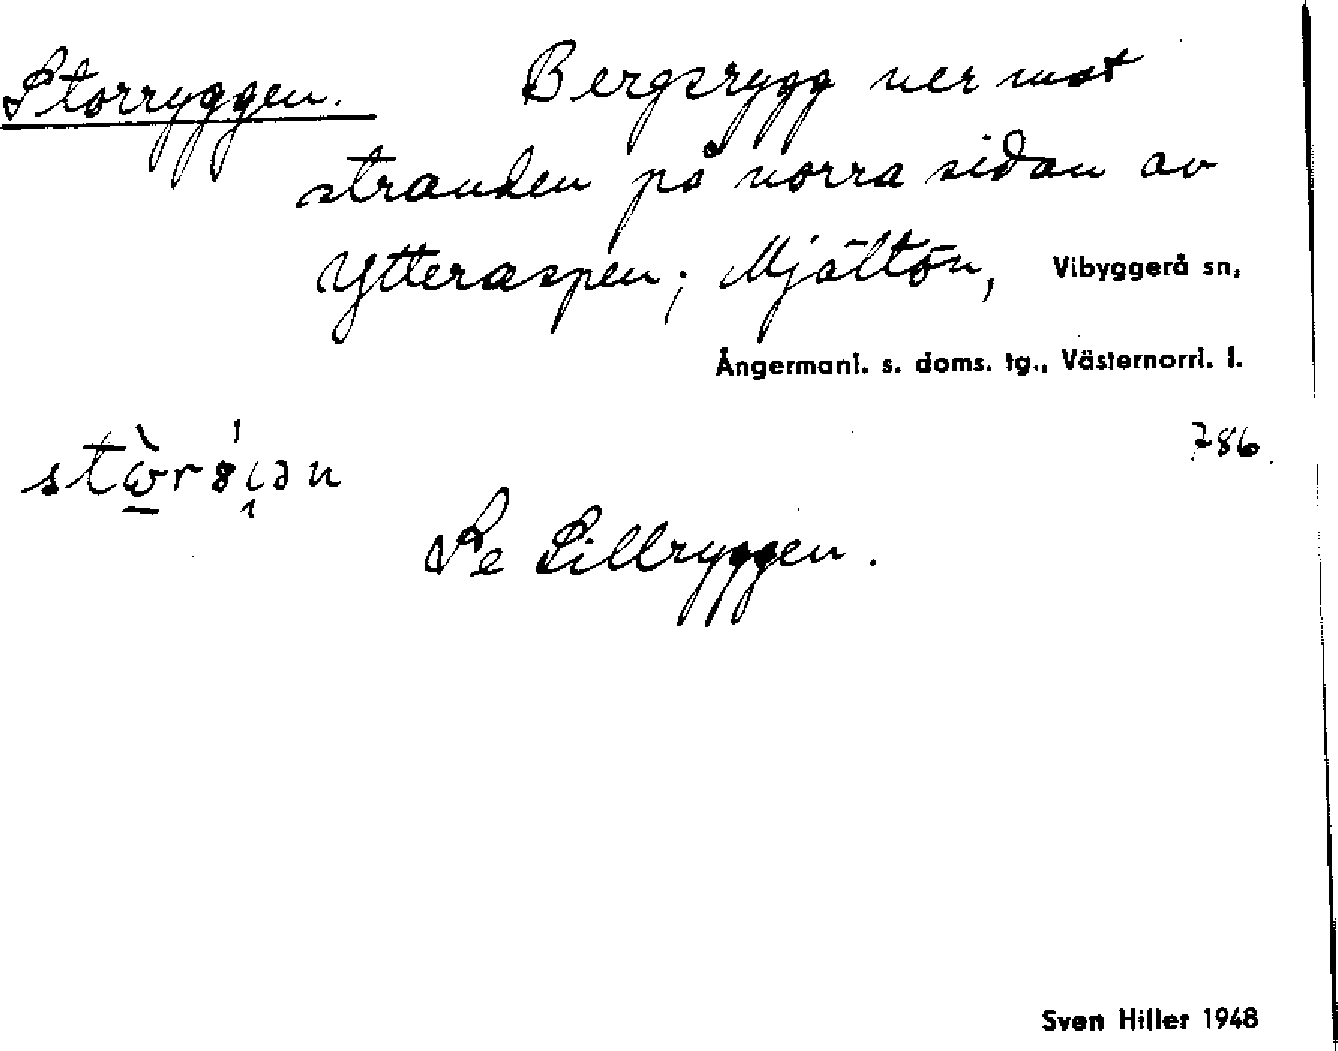 Storryggen. Bergsrygg ner mot
stranden på norra sidan av
Ytteraspen; Mjältön, Vibyggerå sn,
Ångermanl. s. doms. tg., Västernorrl. l.
786
Se Lillryggen.
Sven Hiller 1948